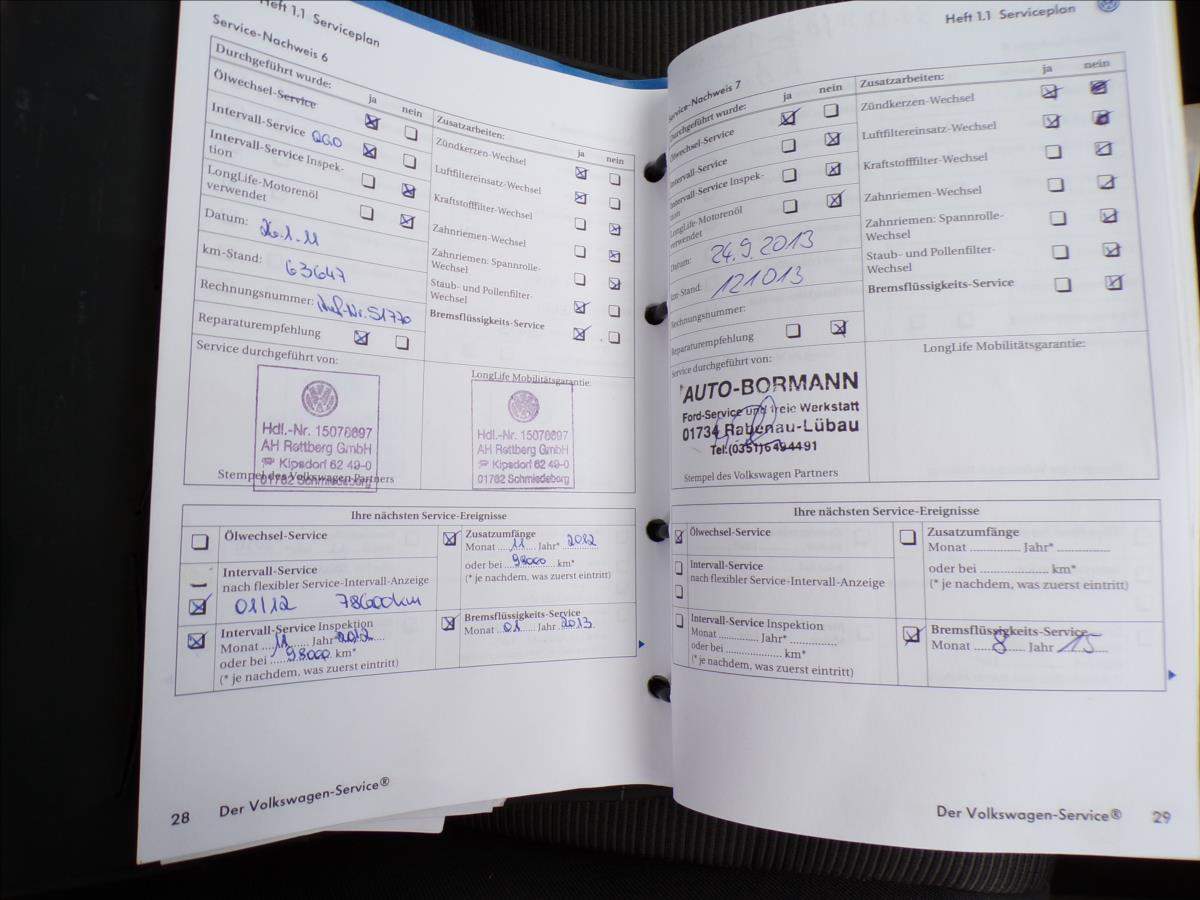 Heft 1.1 Serviceplan
Service-Nachweis 6
Durchgeführt wurde:
ja nein
Ölwechsel-Service
Intervall-Service QG0
Intervall-Service Inspek-
tion
LongLife-Motorenöl
verwendet
Datum: 26.1.11
km-Stand: 63647
Rechnungsnummer: 51770
Reparaturempfehlung
Zusatzarbeiten:
ja nein
Zündkerzen-Wechsel
Luftfiltereinsatz-Wechsel
Kraftstofffilter-Wechsel
Zahnriemen-Wechsel
Zahnriemen: Spannrolle-
Wechsel
Staub- und Pollenfilter-
Wechsel
Bremsflüssigkeits-Service
Service durchgeführt von:
Hdl.-Nr. 15076697
AH Rettberg GmbH
Kipsdorf 62 49-0
01762 Schmiedeberg
Stempel des Volkswagen Partners
LongLife Mobilitätsgarantie:
Hdl.-Nr. 15076697
AH Rettberg GmbH
Kipsdorf 62 49-0
01762 Schmiedeberg
Ihre nächsten Service-Ereignisse
Ölwechsel-Service
Intervall-Service
nach flexibler Service-Intervall-Anzeige
01/12 78600km
Intervall-Service Inspektion
Monat 11 Jahr* 2012
oder bei 98000 km*
(* je nachdem, was zuerst eintritt)
Zusatzumfänge
Monat 11 Jahr* 2012
oder bei 98000 km*
(* je nachdem, was zuerst eintritt)
Bremsflüssigkeits-Service
Monat 01 Jahr 2013
28 Der Volkswagen-Service®
Heft 1.1 Serviceplan
Service-Nachweis 7
Durchgeführt wurde:
ja nein
Ölwechsel-Service
Intervall-Service
Intervall-Service Inspek-
tion
LongLife-Motorenöl
verwendet
Datum: 24.9.2013
km-Stand: 121013
Rechnungsnummer:
Reparaturempfehlung
Zusatzarbeiten:
ja nein
Zündkerzen-Wechsel
Luftfiltereinsatz-Wechsel
Kraftstofffilter-Wechsel
Zahnriemen-Wechsel
Zahnriemen: Spannrolle-
Wechsel
Staub- und Pollenfilter-
Wechsel
Bremsflüssigkeits-Service
Service durchgeführt von:
AUTO-BORMANN
Ford-Service und freie Werkstatt
01734 Rabenau-Lübau
Tel.(0351)6494491
Stempel des Volkswagen Partners
LongLife Mobilitätsgarantie:
Ihre nächsten Service-Ereignisse
Ölwechsel-Service
Intervall-Service
nach flexibler Service-Intervall-Anzeige
Intervall-Service Inspektion
Monat Jahr*
oder bei km*
(* je nachdem, was zuerst eintritt)
Zusatzumfänge
Monat Jahr*
oder bei km*
(* je nachdem, was zuerst eintritt)
Bremsflüssigkeits-Service
Monat 8 Jahr 15
Der Volkswagen-Service® 29